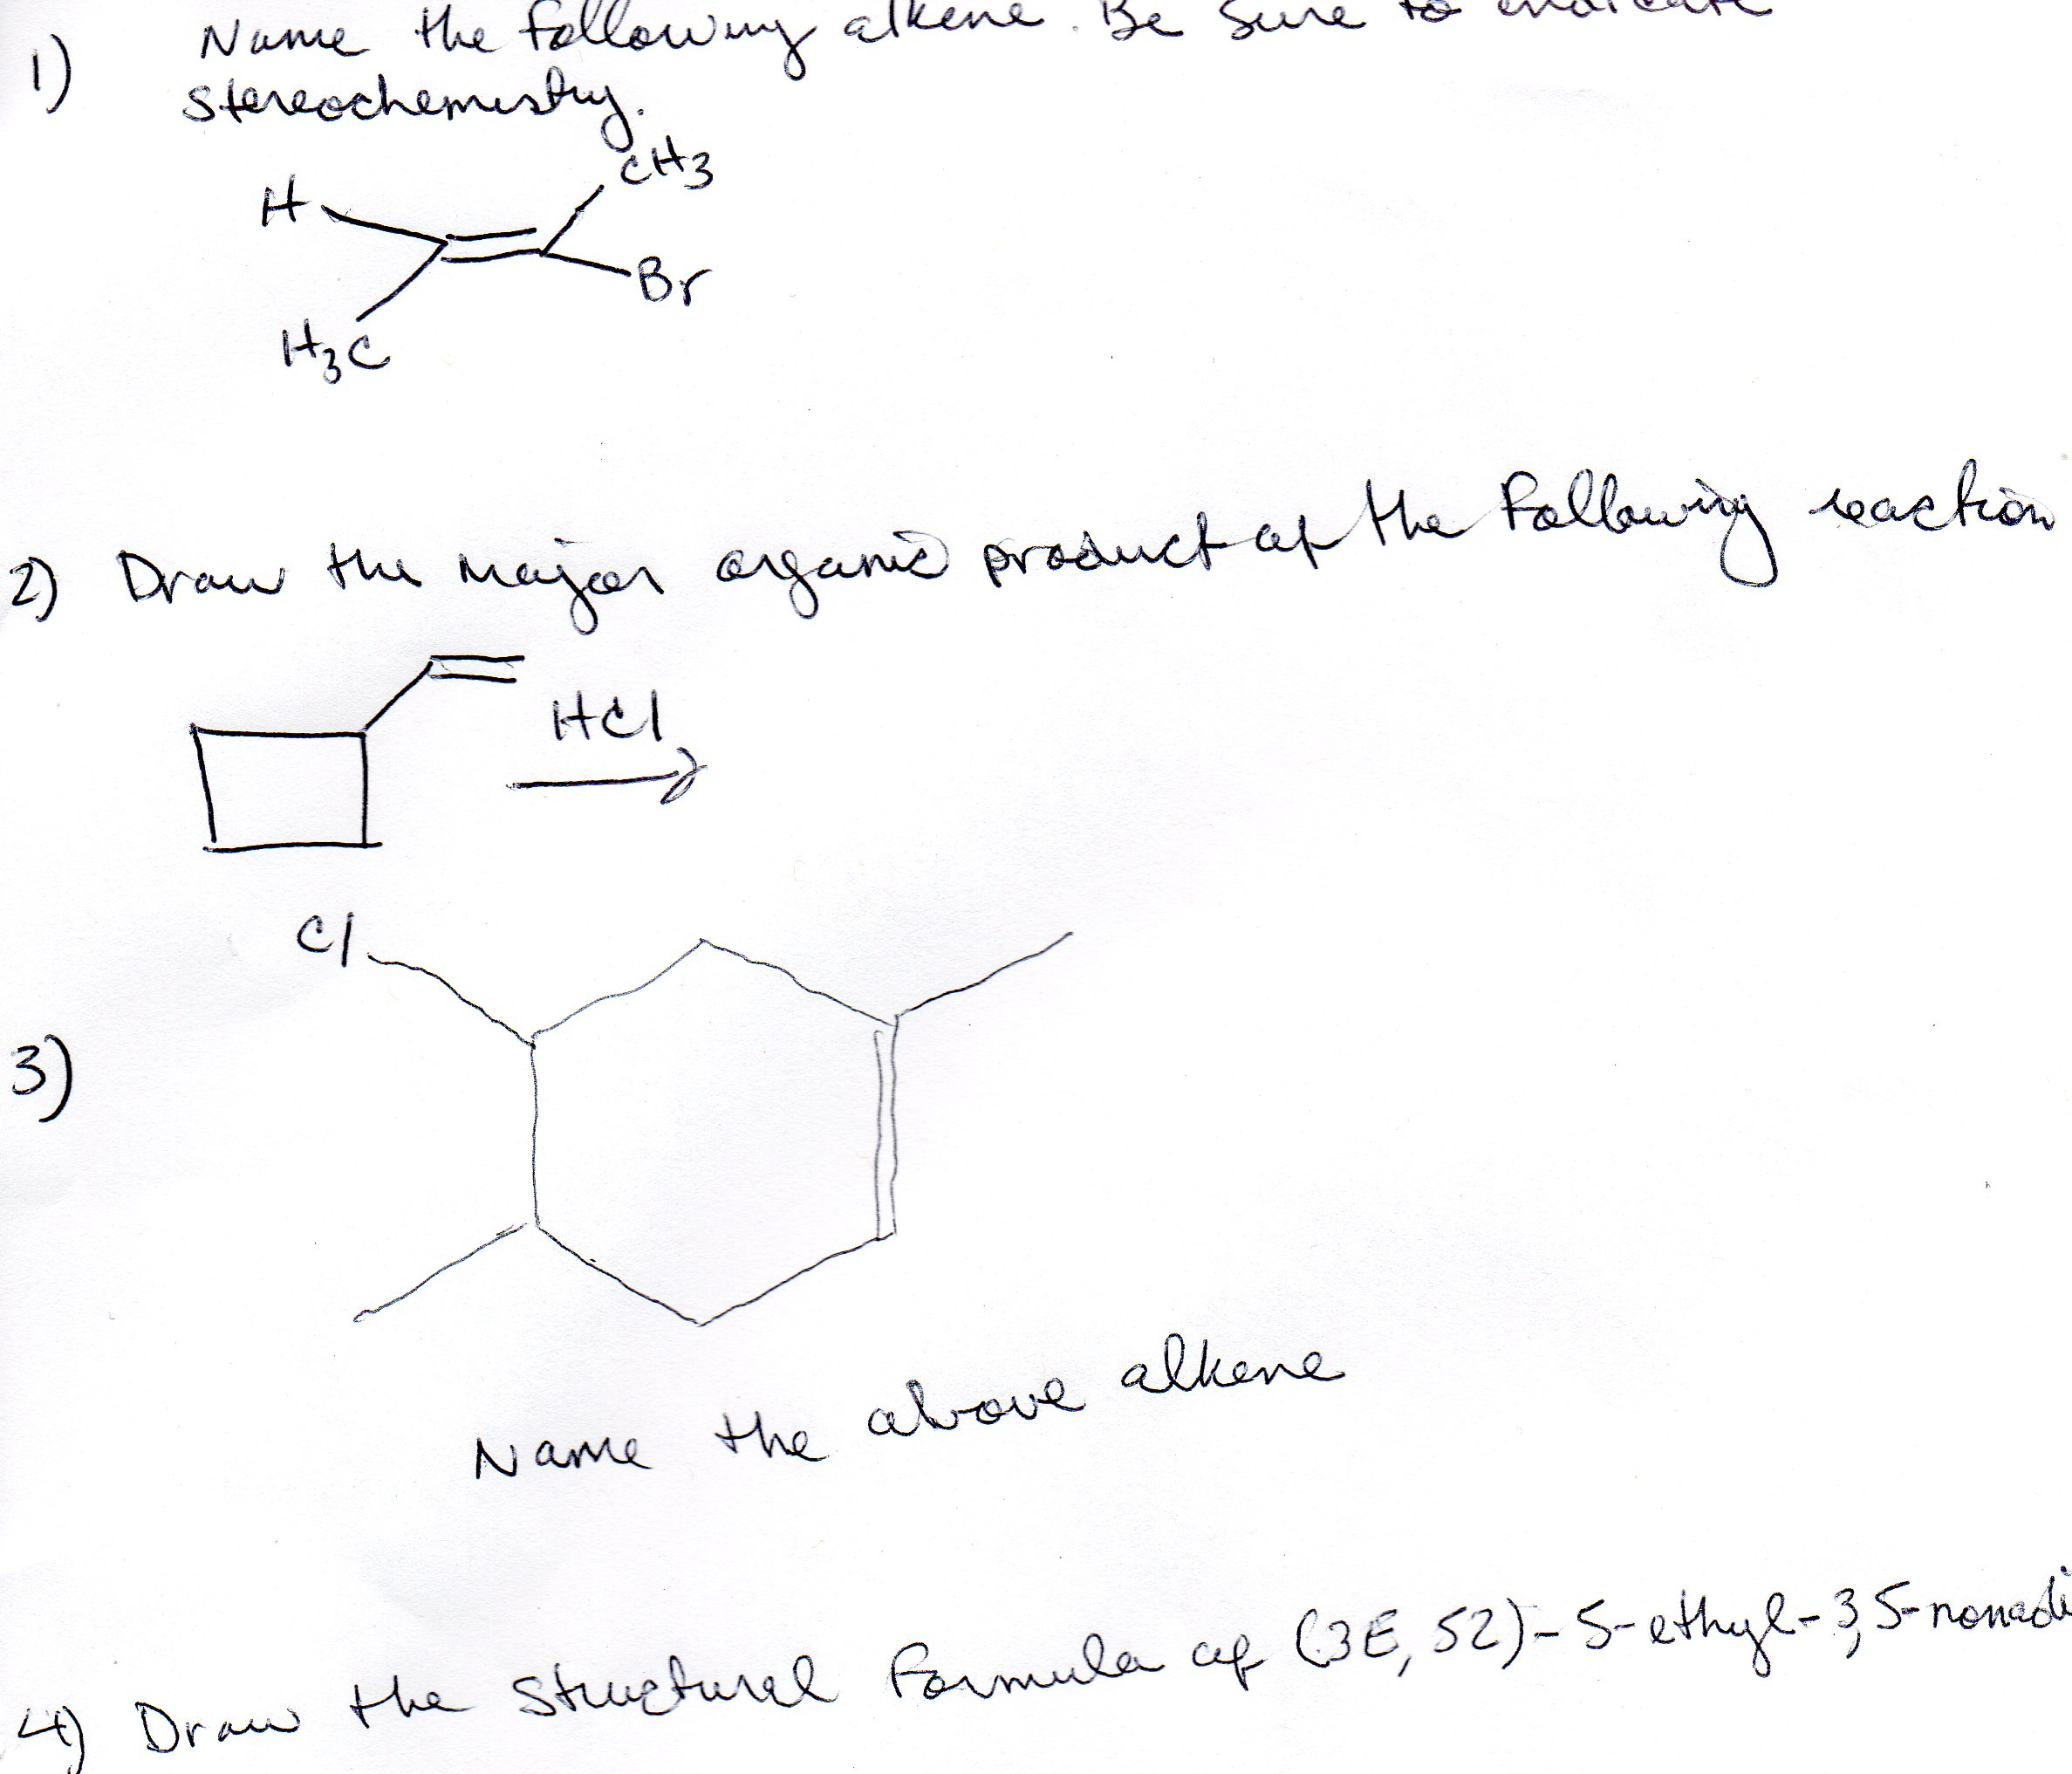 1) Name the following alkene. Be sure to indicate
stereochemistry.
CH3
H
Br
H3C
2) Draw the major organic product of the following reaction
HCl
Cl
3)
Name the above alkene
4) Draw the structural formula of (3E, 5Z)-5-ethyl-3,5-nonadi